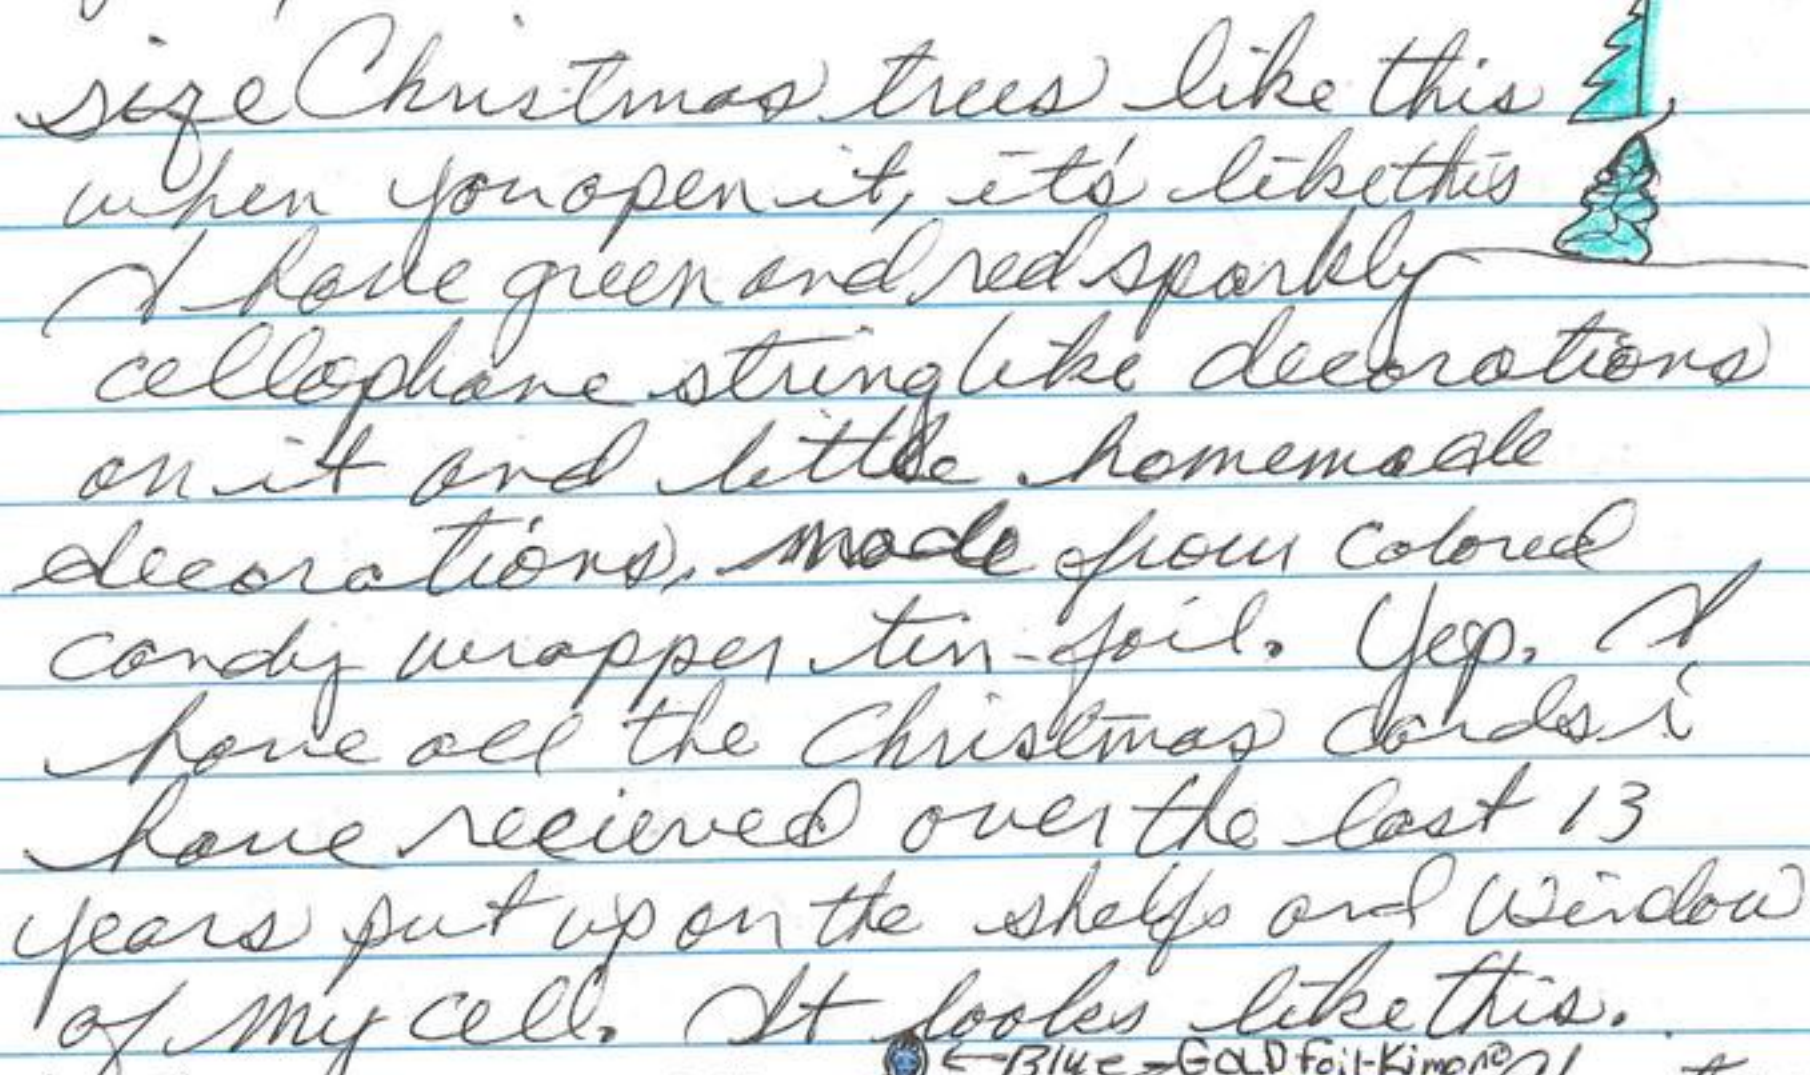 size Christmas trees like this
when you open it, it's like this
I have green and red sparkly
cellophane string like decorations
on it and little homemade
decorations, made from colored
candy wrapper tin-foil. Yep, I
have all the Christmas cards i
have recieved over the last 13
years put up on the shelfs and window
of my cell. It looks like this.
←Blue-GOLD Foil-